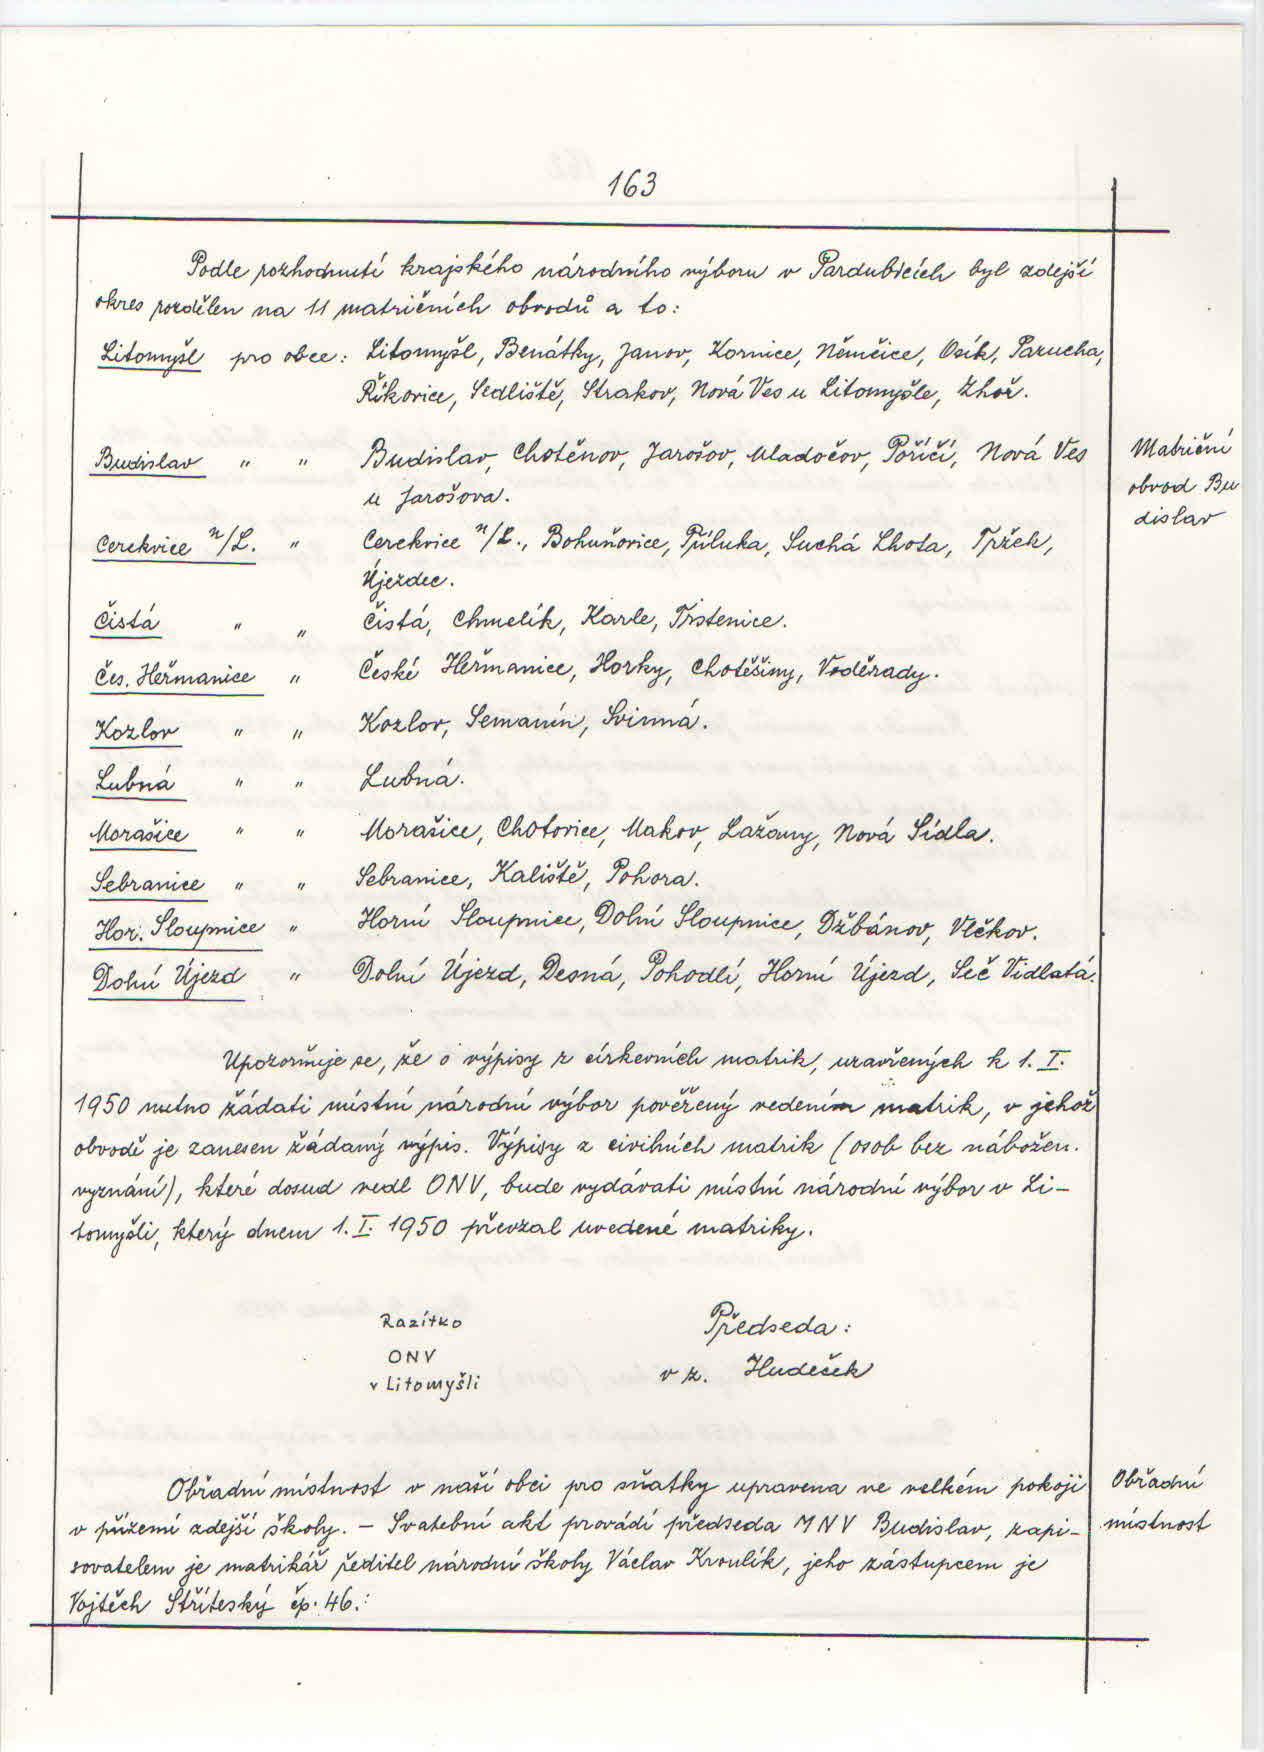 163
Podle rozhodnutí krajského národního výboru v Pardubicích byl zdejší
okres rozdělen na 11 matričních obvodů a to:
Litomyšl pro obce: Litomyšl, Benátky, Janov, Kornice, Němčice, Osík, Pazucha,
Říkovice, Sedliště, Strakov, Nová Ves u Litomyšle, Zhoř.
Budislav " " Budislav, Chotěnov, Jarošov, Mladočov, Poříčí, Nová Ves
u Jarošova.
Matriční
obvod Bu
dislav
Cerekvice n/L. " Cerekvice n/L., Bohuňovice, Příluka, Suchá Lhota, Tržek,
Újezdec.
Čistá " " Čistá, Chmelík, Karle, Trstenice.
Čes. Heřmanice " České Heřmanice, Horky, Chotěšiny, Voděrady.
Kozlov " " Kozlov, Semanín, Svinná.
Lubná " " Lubná.
Morašice " " Morašice, Chotovice, Makov, Lažany, Nová Sídla.
Sebranice " " Sebranice, Kaliště, Pohora.
Hor. Sloupnice " Horní Sloupnice, Dolní Sloupnice, Džbánov, Vlčkov.
Dolní Újezd " Dolní Újezd, Desná, Pohodlí, Horní Újezd, Seč Vidlatá.
Upozorňuje se, že o výpisy z církevních matrik, uzavřených k 1. I.
1950 nutno žádati místní národní výbor pověřený vedením matrik, v jehož
obvodě je zanesen žádaný výpis. Výpisy z civilních matrik (osob bez nábožen.
vyznání), které dosud vedl ONV, bude vydávati místní národní výbor v Li-
tomyšli, který dnem 1. I. 1950 převzal uvedené matriky.
Razítko
ONV
v Litomyšli
Předseda:
v z. Hudeček
Obřadní místnost v naší obci pro sňatky upravena ve velkém pokoji
v přízemí zdejší školy. – Svatební akt provádí předseda MNV Budislav, zapi-
sovatelem je matrikář ředitel národní školy Václav Kroulík, jeho zástupcem je
Vojtěch Stříteský čp. 46.
Obřadní
místnost